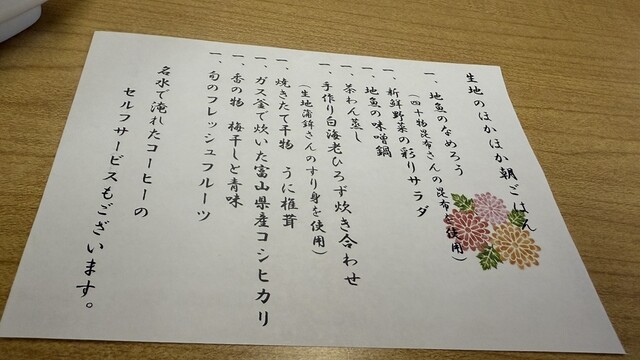 生地のほかほか朝ごはん
一、地魚のなめろう
（四十物昆布さんの昆布を使用）
一、新鮮野菜の彩りサラダ
一、地魚の味噌鍋
一、茶わん蒸し
一、手作り白海老ひろず炊き合わせ
（生地蒲鉾さんのすり身を使用）
一、焼きたて干物　うに椎茸
一、ガス釜で炊いた富山県産コシヒカリ
一、香の物　梅干しと青味
一、旬のフレッシュフルーツ
名水で淹れたコーヒーの
セルフサービスもございます。